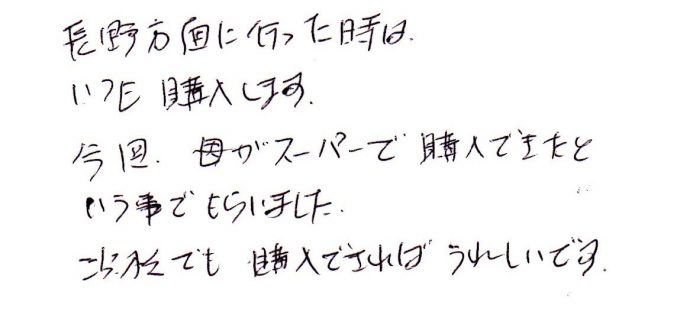 長野方面に行った時は、
いつも購入します。
今回、母がスーパーで購入できたと
いう事でもらいました。
でも購入できればうれしいです。